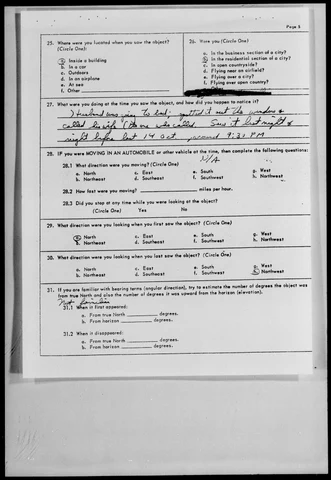 Page 5
25. Where were you located when you saw the object?
(Circle One)
a. Inside a building
b. In a car
c. Outdoors
d. In an airplane
e. At sea
f. Other
26. Were you (Circle One)
a. In the business section of a city?
b. In the residential section of a city?
c. In open countryside?
d. Flying near an airfield?
e. Flying over a city?
f. Flying over open country?
27. What were you doing at the time you saw the object, and how did you happen to notice it?
Husband was going to bed, spotted it out the window &
called his wife & the one who called. Saw it last night &
night before last 14 Oct around 9:30 PM
28. IF you were MOVING IN AN AUTOMOBILE or other vehicle at the time, then complete the following questions:
N/A
28.1 What direction were you moving? (Circle One)
a. North c. East e. South g. West
b. Northeast d. Southeast f. Southwest h. Northwest
28.2 How fast were you moving? miles per hour.
28.3 Did you stop at any time while you were looking at the object?
(Circle One) Yes No
29. What direction were you looking when you first saw the object? (Circle One)
a. North c. East e. South g. West
b. Northeast d. Southeast f. Southwest h. Northwest
30. What direction were you looking when you last saw the object? (Circle One)
a. North c. East e. South g. West
b. Northeast d. Southeast f. Southwest h. Northwest
31. If you are familiar with bearing terms (angular direction), try to estimate the number of degrees the object was
from true North and also the number of degrees it was upward from the horizon (elevation).
Not familiar
31.1 When it first appeared:
a. From true North degrees.
b. From horizon degrees.
31.2 When it disappeared:
a. From true North degrees.
b. From horizon degrees.